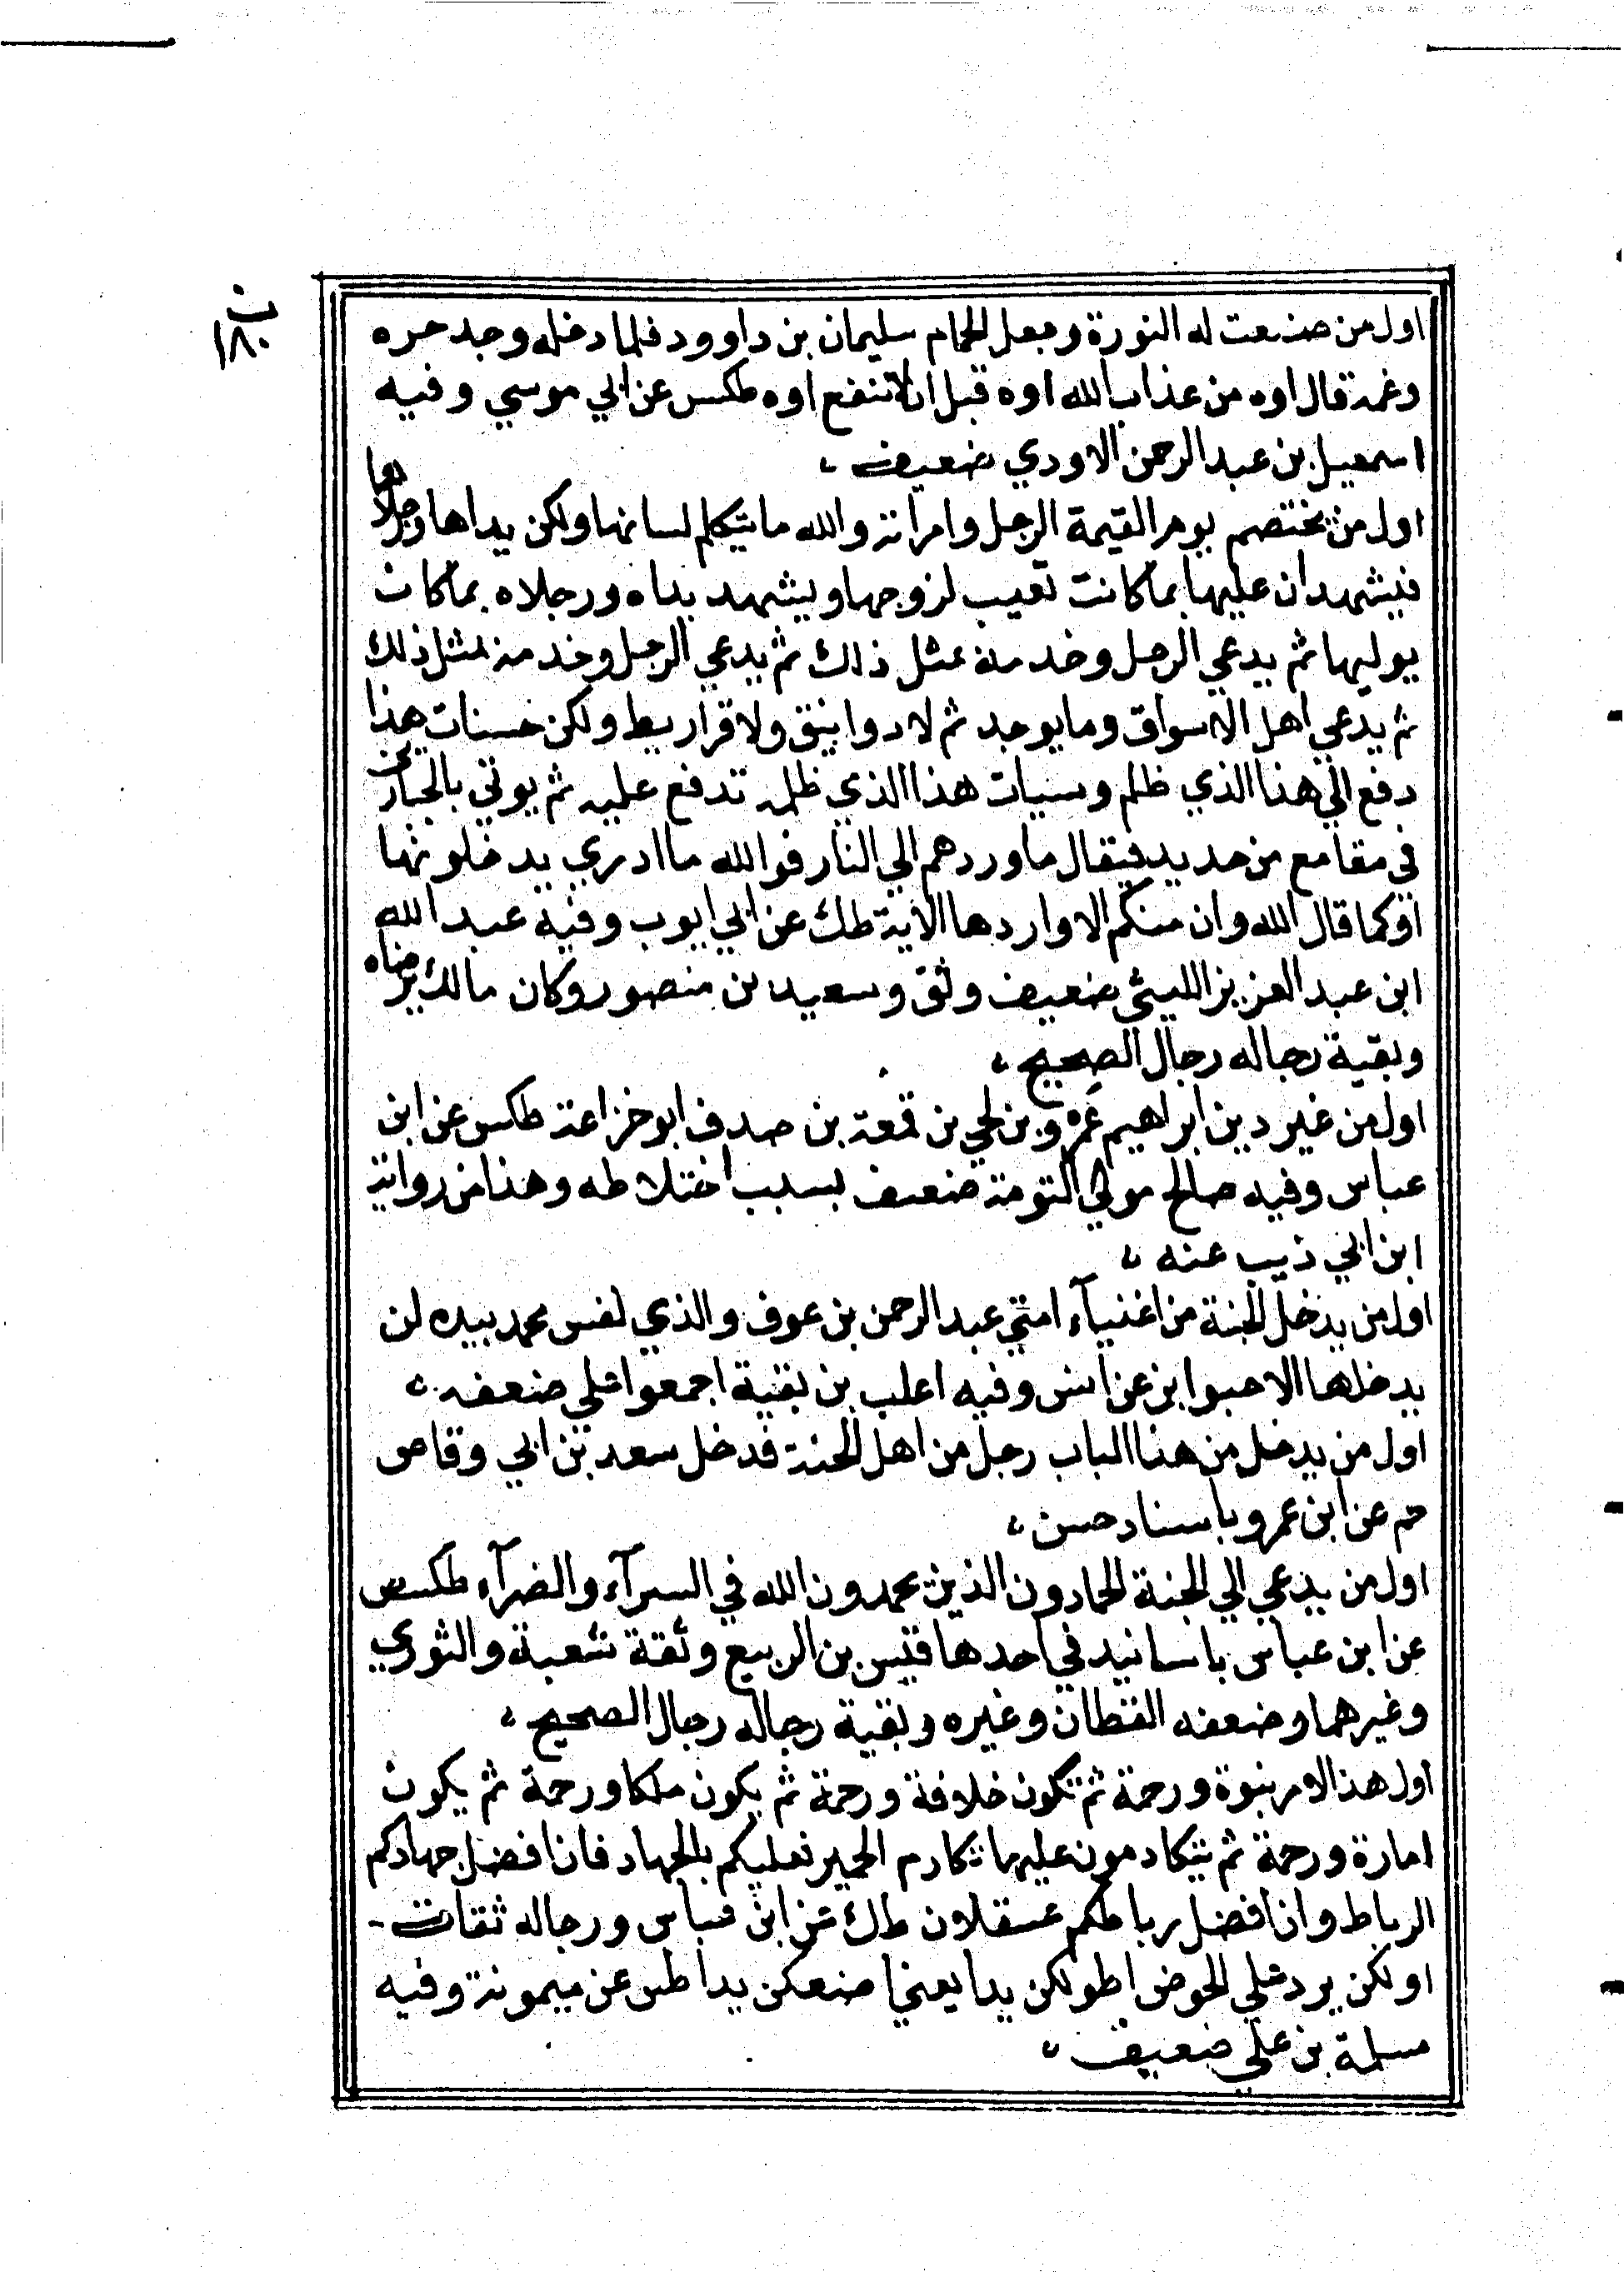 ن
١٨٠
اول من صنعت له النورة وجعل الحمام سليمان بن داوود فلما دخله وجد حره
وغمه قال اوه من عذاب الله اوه قبل ان لا تنفع اوه طكس عن ابي موسي وفيه
اسمعيل بن عبد الرحمن الاودي ضعيف
اول من يختصم يوم القيمة الرجل وامراته والله ما يتكلم لسانها ولكن يداها ورجلاها
فيشهدان عليها بما كانت تعيب لزوجها ويشهد يداه ورجلاه بما كان
يوليها ثم يدعي الرجل وخدمه بمثل ذلك ثم يدعي الرجل وخدمه بمثل ذلك
ثم يدعي اهل الاسواق وما يوجد ثم لا دوانيق ولا قراريط ولكن حسنات هذا
دفع الي هذا الذي ظلم وسيات هذا الذي ظلمه تدفع عليه ثم يوتي بالجبارين
في مقامع من حديد فيقال ما وردهم الي النار فوالله ما ادري يدخلونها
او كما قال الله وان منكم الا واردها الاية طك عن ابي ايوب وفيه عبد الله
ابن عبد العزيز الليثي ضعيف وثق وسعيد بن منصور وكان مالك يرضاه
وبقية رجاله رجال الصحيح
اول من غير دين ابراهيم عمرو بن لحي بن قمعة بن صدف ابو خزاعة طكس عن ابن
عباس وفيه صالح مولي التومة ضعف بسبب اختلاطه وهذا من رواية
ابن ابي ذيب عنه
اول من يدخل الجنة من اغنياء امتي عبد الرحمن بن عوف والذي نفس محمد بيده لن
يدخلها الا حبوا بز عن انس وفيه اغلب بن بقية اجمعوا علي ضعفه
اول من يدخل من هذا الباب رجل من اهل الجنة فدخل سعد بن ابي وقاص
حم عن ابن عمرو باسناد حسن
اول من يدعي الي الجنة الحمادون الذين يحمدون الله في السرآء والضرآء طكس
عن ابن عباس باسانيد في احدها قيس بن الربيع وثقة شعبة والثوري
وغيرهما وضعفه القطان وغيره وبقية رجاله رجال الصحيح
اول هذا الامر نبوة ورحمة ثم تكون خلافة ورحمة ثم يكون ملكا ورحمة ثم يكون
امارة ورحمة ثم يتكادمون عليها تكادم الحمير فعليكم بالجهاد فان افضل جهادكم
الرباط وان افضل رباطكم عسقلان طك عن ابن عباس ورجاله ثقات
اولكن يرد علي الحوض اطولكن يدا يعني اصنعكن يدا طس عن ميمونة وفيه
مسلمة بن علي ضعيف